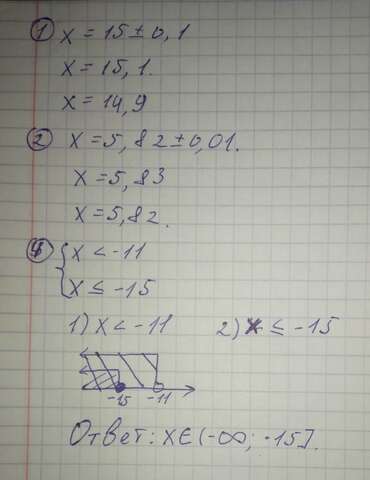 ① x = 15 ± 0,1
x = 15,1.
x = 14,9
② x = 5,82 ± 0,01.
x = 5,83
x = 5,82.
④ { x < -11
x ≤ -15
1) x < -11 2) x ≤ -15
-15 -11
Ответ: x ∈ (-∞; -15].